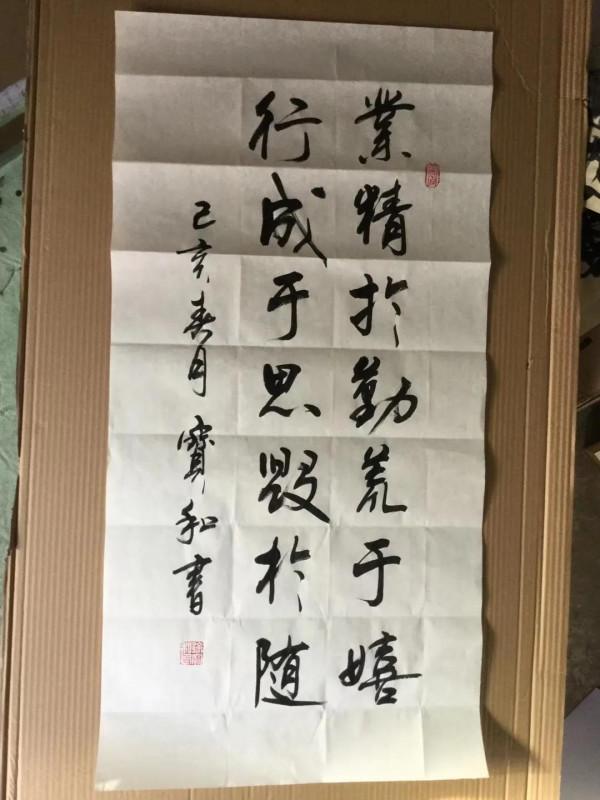 業精於勤荒于嬉
行成于思毁於随
己亥春月寶和書